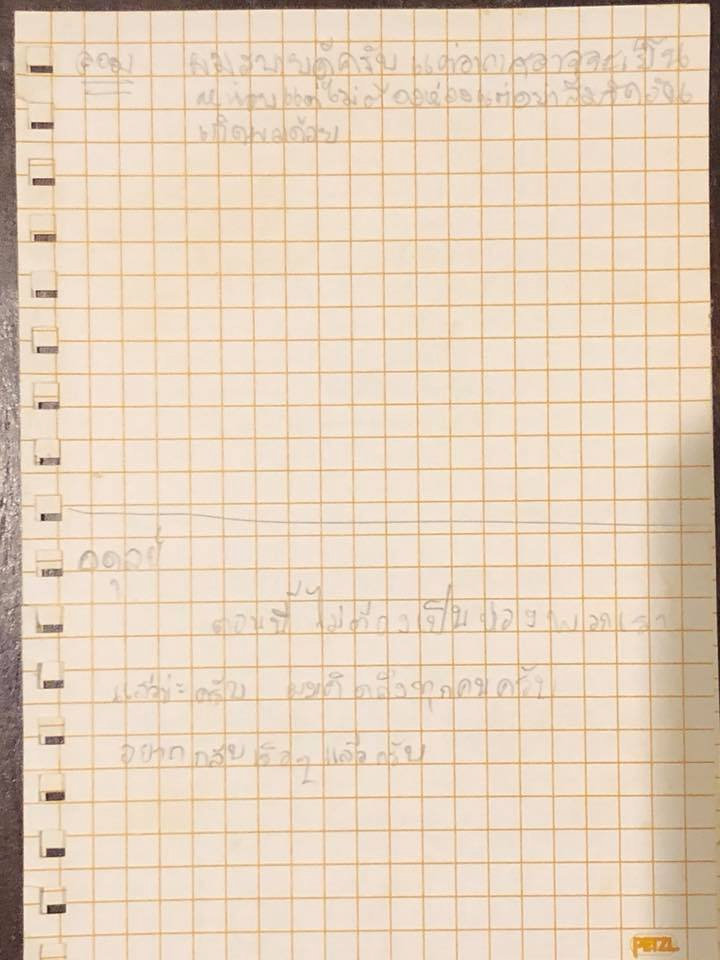 ดอม ผมสบายดีครับ แต่อากาศอาจจะเย็น
หน่อย แต่ไม่ต้องห่วงแต่อย่าลืมจัดวัน
เกิดผมด้วย
อดุลย์
ตอนนี้ ไม่ต้องเป็นห่วงพวกเรา
แล้วนะครับ ผมคิดถึงทุกคนครับ
อยากกลับเร็วๆ แล้วครับ
PETZL